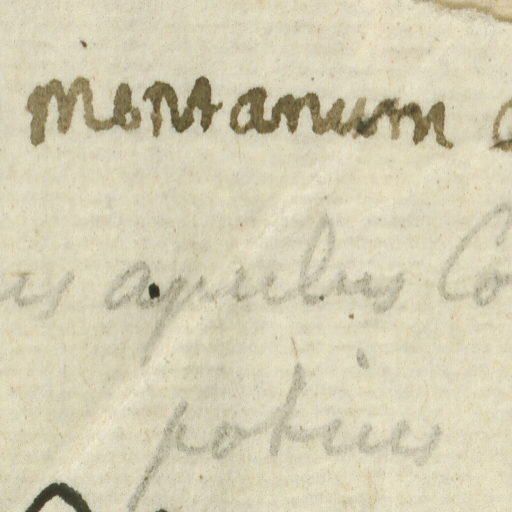 montanum
us apulus Co
potius